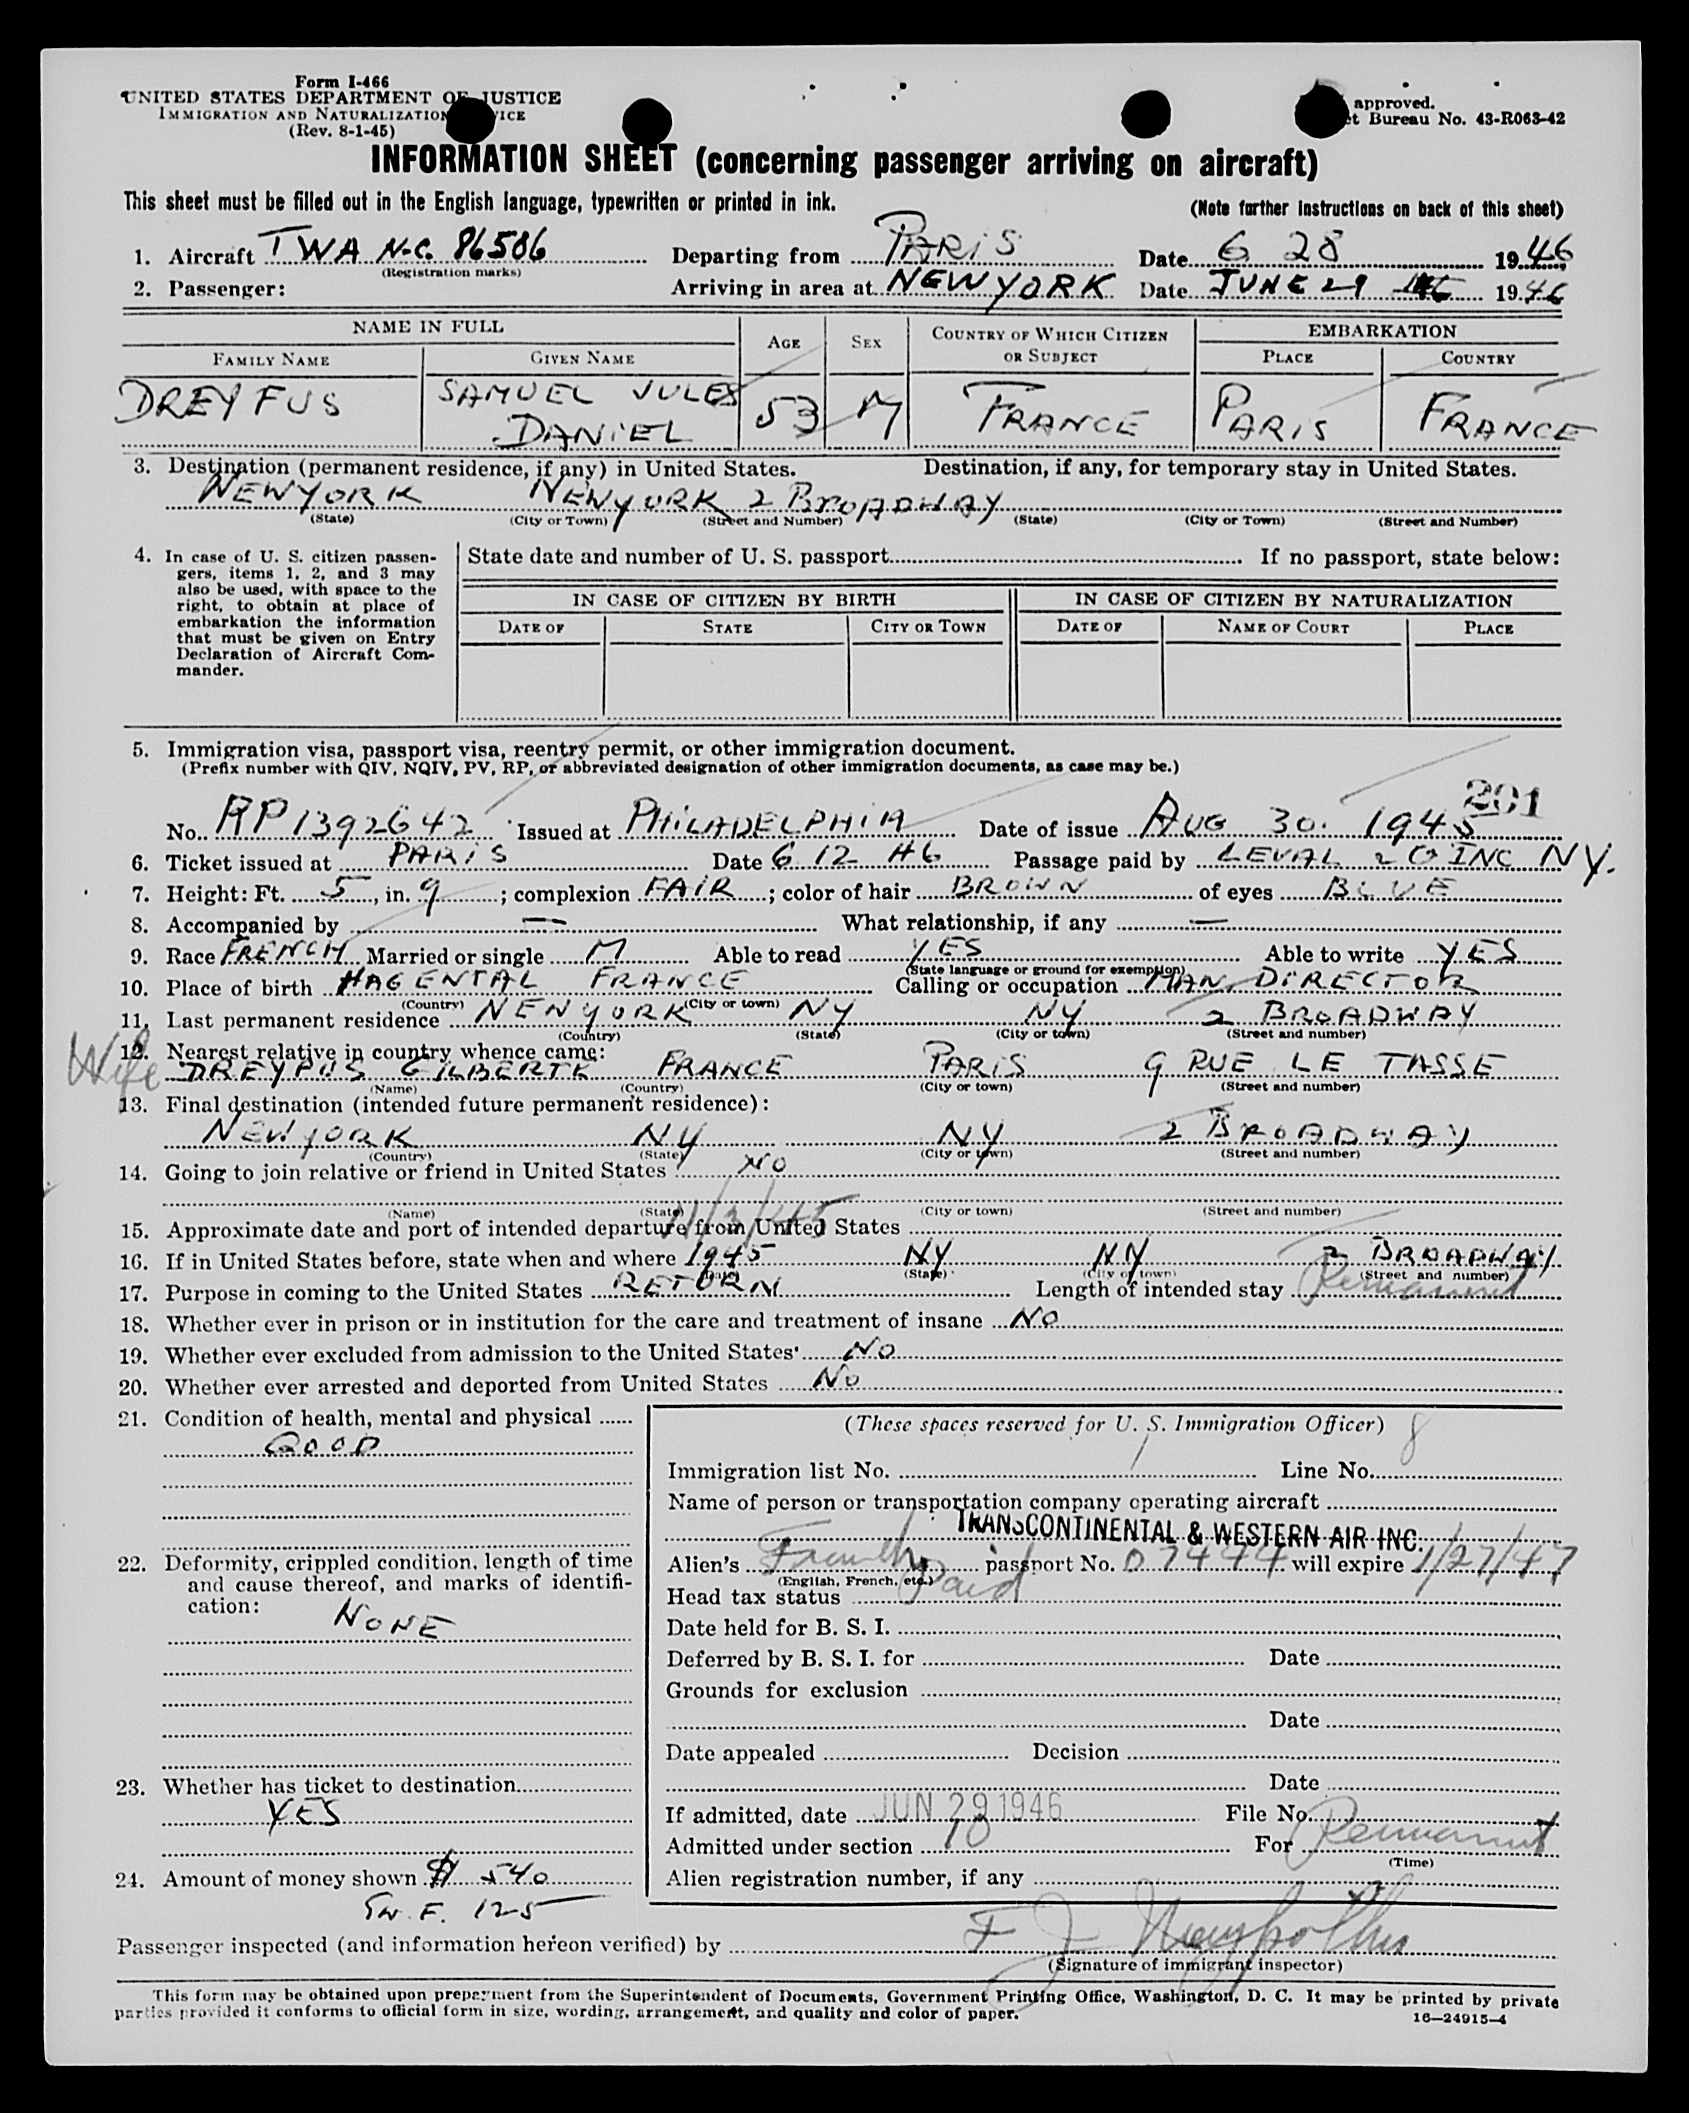 Form I-466
UNITED STATES DEPARTMENT OF JUSTICE
IMMIGRATION AND NATURALIZATION
(Rev. 8-1-45)
approved.
Bureau No. 43-R063-42
INFORMATION SHEET (concerning passenger arriving on aircraft)
This sheet must be filled out in the English language, typewritten or printed in ink.
(Note further instructions on back of this sheet)
1. Aircraft TWA N.C. 86506 Departing from PARIS Date 6 28 1946
(Registration marks)
2. Passenger: Arriving in area at NEW YORK Date JUNE 29 1946
NAME IN FULL AGE SEX COUNTRY OF WHICH CITIZEN OR SUBJECT EMBARKATION
FAMILY NAME GIVEN NAME PLACE COUNTRY
DREYFUS SAMUEL JULES DANIEL 53 M FRANCE PARIS FRANCE
3. Destination (permanent residence, if any) in United States. Destination, if any, for temporary stay in United States.
NEWYORK NEWYORK 2 BROADWAY
(State) (City or Town) (Street and Number) (State) (City or Town) (Street and Number)
4. In case of U. S. citizen passen-
gers, items 1, 2, and 3 may
also be used, with space to the
right, to obtain at place of
embarkation the information
that must be given on Entry
Declaration of Aircraft Com-
mander.
State date and number of U. S. passport If no passport, state below:
IN CASE OF CITIZEN BY BIRTH IN CASE OF CITIZEN BY NATURALIZATION
DATE OF STATE CITY OR TOWN DATE OF NAME OF COURT PLACE
5. Immigration visa, passport visa, reentry permit, or other immigration document.
(Prefix number with QIV, NQIV, PV, RP, or abbreviated designation of other immigration documents, as case may be.)
201
No. RP 1392642 Issued at PHILADELPHIA Date of issue AUG 30. 1945
6. Ticket issued at PARIS Date 6 12 46 Passage paid by LEVAL & CO INC NY.
7. Height: Ft. 5, in. 9; complexion FAIR; color of hair BROWN of eyes BLUE
8. Accompanied by — What relationship, if any —
9. Race FRENCH Married or single M Able to read YES Able to write YES
(State language or ground for exemption)
10. Place of birth HAGENTAL FRANCE Calling or occupation MAN. DIRECTOR
(Country) (City or town)
11. Last permanent residence NEWYORK NY NY 2 BROADWAY
(Country) (State) (City or town) (Street and number)
Wife
12. Nearest relative in country whence came:
DREYFUS GILBERTE FRANCE PARIS 9 RUE LE TASSE
(Name) (Country) (City or town) (Street and number)
13. Final destination (intended future permanent residence):
NEWYORK NY NY 2 BROADWAY
(Country) (State) (City or town) (Street and number)
14. Going to join relative or friend in United States NO
(Name) (State) (City or town) (Street and number)
15. Approximate date and port of intended departure from United States
16. If in United States before, state when and where 1945 NY NY 2 BROADWAY
(State) (City or town) (Street and number)
17. Purpose in coming to the United States RETURN Length of intended stay Permanent
18. Whether ever in prison or in institution for the care and treatment of insane NO
19. Whether ever excluded from admission to the United States NO
20. Whether ever arrested and deported from United States NO
21. Condition of health, mental and physical
GOOD
22. Deformity, crippled condition, length of time
and cause thereof, and marks of identifi-
cation:
NONE
23. Whether has ticket to destination
YES
24. Amount of money shown $ 540
SW. F. 125
(These spaces reserved for U. S. Immigration Officer)
Immigration list No. 1 Line No. 8
Name of person or transportation company operating aircraft
TRANSCONTINENTAL & WESTERN AIR INC.
Alien's French passport No. 07444 will expire 1/27/47
(English, French, etc.)
Head tax status Paid
Date held for B. S. I.
Deferred by B. S. I. for Date
Grounds for exclusion
Date
Date appealed Decision
Date
If admitted, date JUN 29 1946 File No.
Admitted under section 10 For Permanent
(Time)
Alien registration number, if any
Passenger inspected (and information hereon verified) by
(Signature of immigrant inspector)
This form may be obtained upon prepayment from the Superintendent of Documents, Government Printing Office, Washington, D. C. It may be printed by private
parties provided it conforms to official form in size, wording, arrangement, and quality and color of paper.
16—24915-4